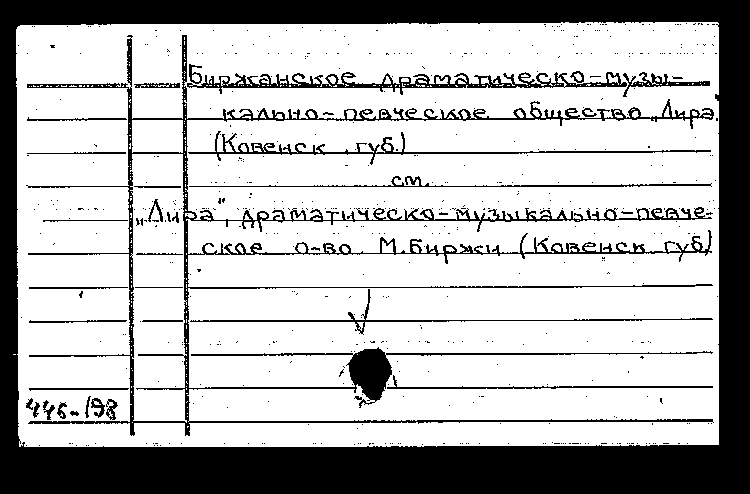 Биржанское драматическо-музы-
кально-певческое общество „Лира"
(Ковенск. губ.)
см.
„Лира", драматическо-музыкально-певче-
ское о-во м. Биржи (Ковенск губ)
446-198